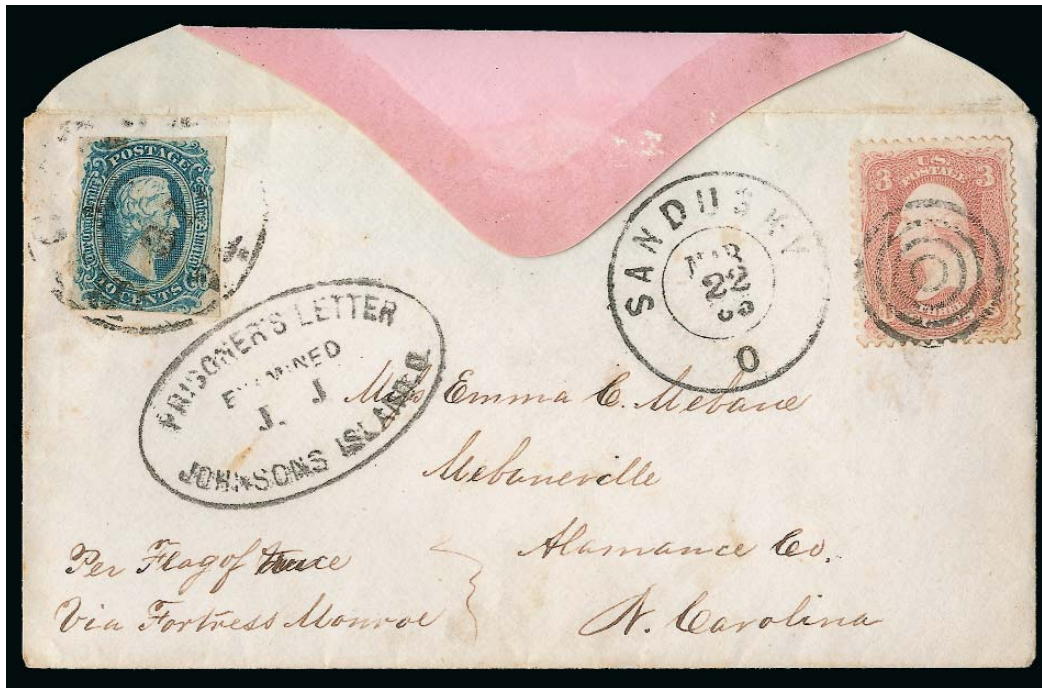 POSTAGE
10 CENTS
3 U.S. 3
POSTAGE
SANDUSKY
MAR
22
O
PRISONER'S LETTER
EXAMINED
J. J
JOHNSONS ISLAND O
Miss Emma C. Mebane
Mebaneville
Alamance Co.
N. Carolina
Per Flag of truce
Via Fortress Monroe